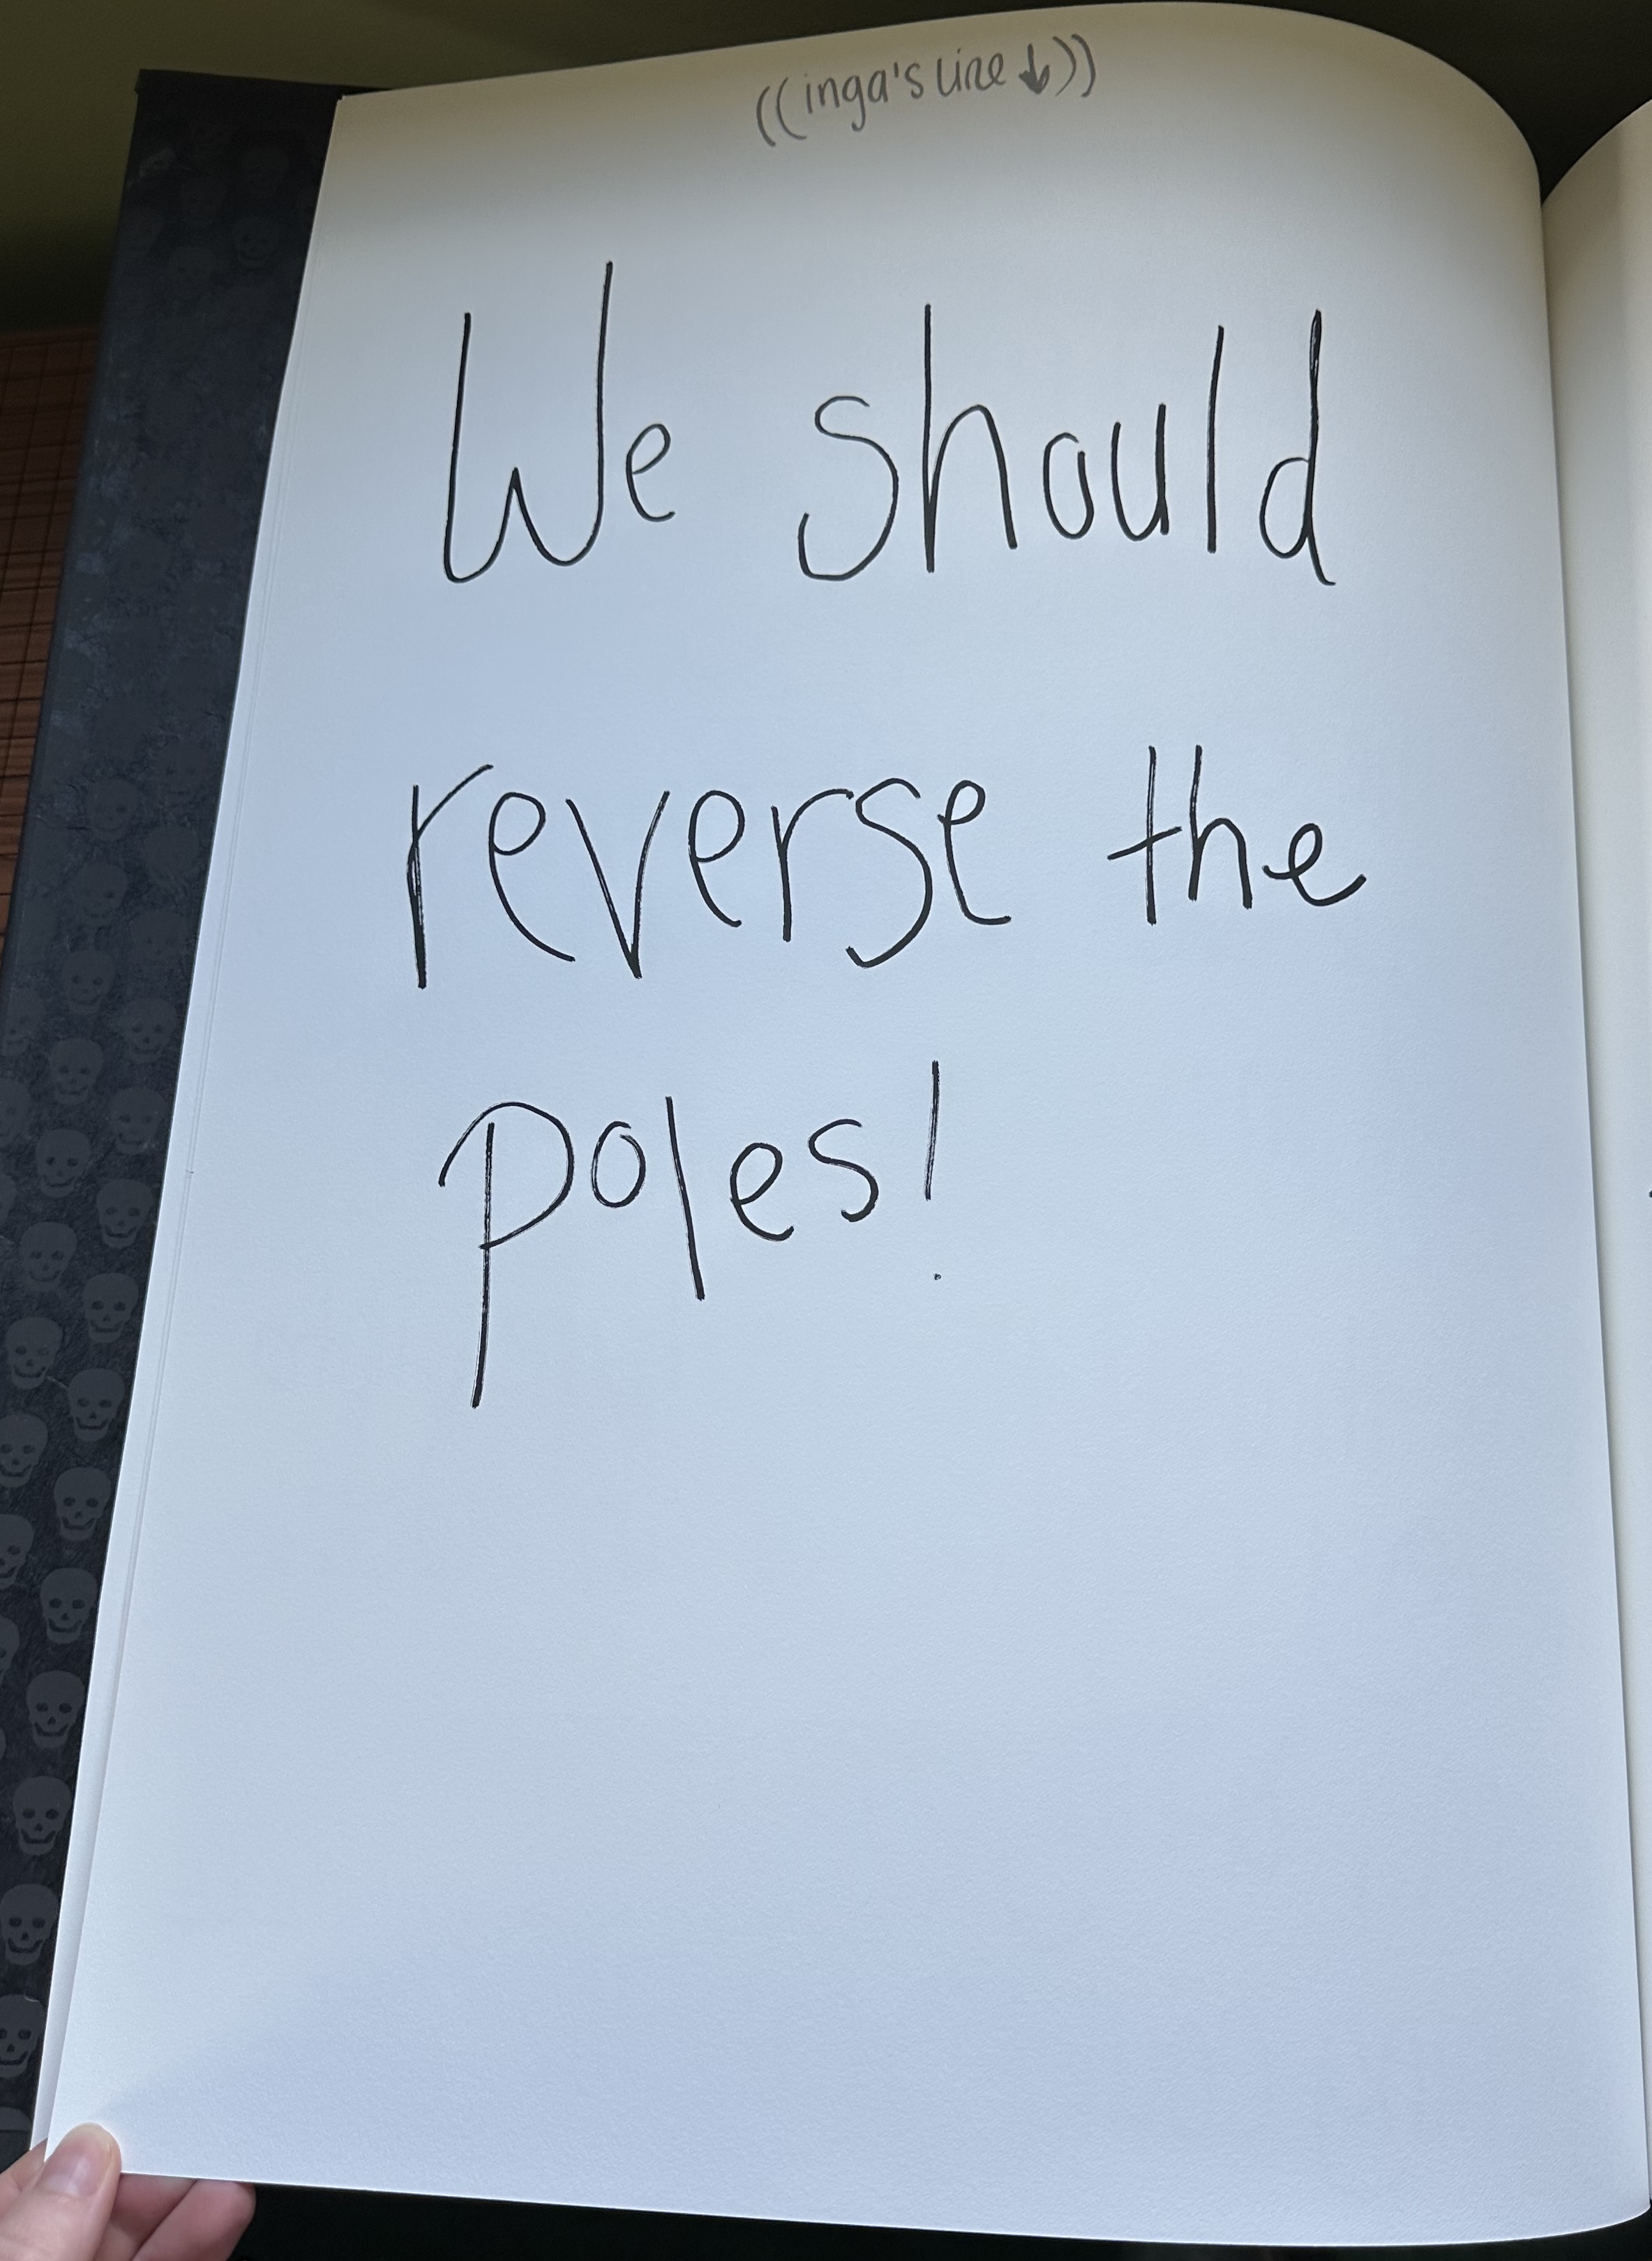 ((inga's line ↓))
We should
reverse the
poles!